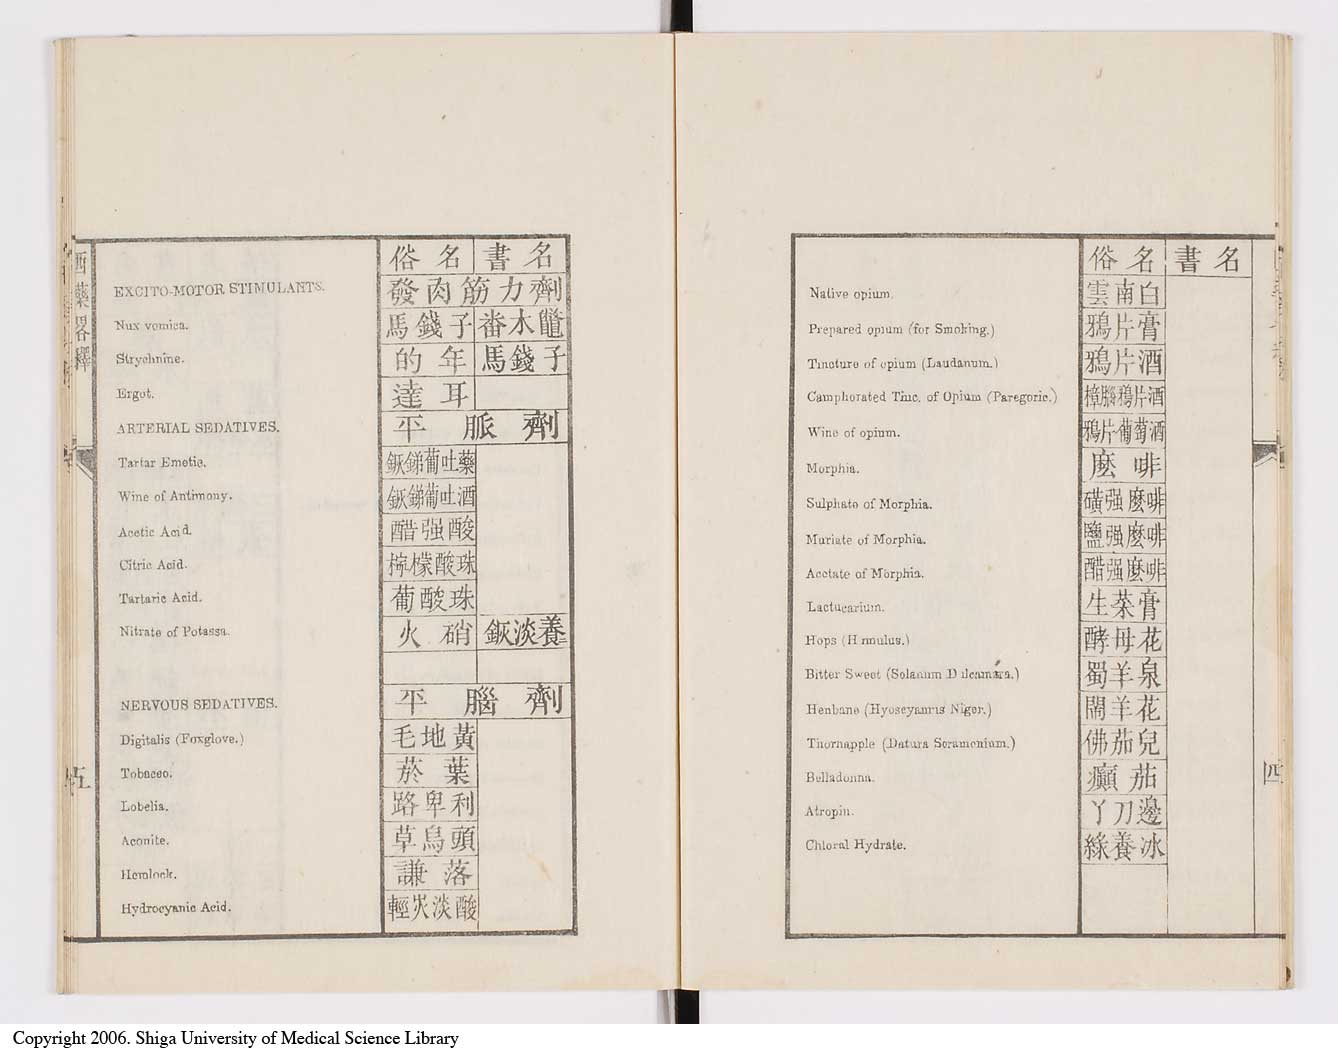 俗名 書名
Native opium. 雲南白
Prepared opium (for Smoking.) 鴉片膏
Tincture of opium (Laudanum.) 鴉片酒
Camphorated Tinc. of Opium (Paregoric.) 樟腦鴉片酒
Wine of opium. 鴉片葡萄酒
Morphia. 麼啡
Sulphate of Morphia. 磺强麼啡
Muriate of Morphia. 鹽强麼啡
Acetate of Morphia. 醋强麼啡
Lactucarium. 生菜膏
Hops (Humulus.) 酵母花
Bitter Sweet (Solanum Dulcamara.) 蜀羊泉
Henbane (Hyoscyamus Niger.) 鬧羊花
Thornapple (Datura Stramonium.) 佛茄兒
Belladonna. 癲茄
Atropin. 丫刀邊
Chloral Hydrate. 綠養冰
四
俗名 書名
EXCITO-MOTOR STIMULANTS. 發肉筋力劑
Nux vomica. 馬錢子 番木鼈
Strychnine. 的年 馬錢子
Ergot. 達耳
ARTERIAL SEDATIVES. 平脈劑
Tartar Emetic. 鉄銻葡吐藥
Wine of Antimony. 鉄銻葡吐酒
Acetic Acid. 醋强酸
Citric Acid. 檸檬酸珠
Tartaric Acid. 葡酸珠
Nitrate of Potassa. 火硝 鉄淡養
NERVOUS SEDATIVES. 平腦劑
Digitalis (Foxglove.) 毛地黃
Tobacco. 菸葉
Lobelia. 路卑利
Aconite. 草烏頭
Hemlock. 謙落
Hydrocyanic Acid. 輕炭淡酸
西藥畧釋
五
Copyright 2006. Shiga University of Medical Science Library